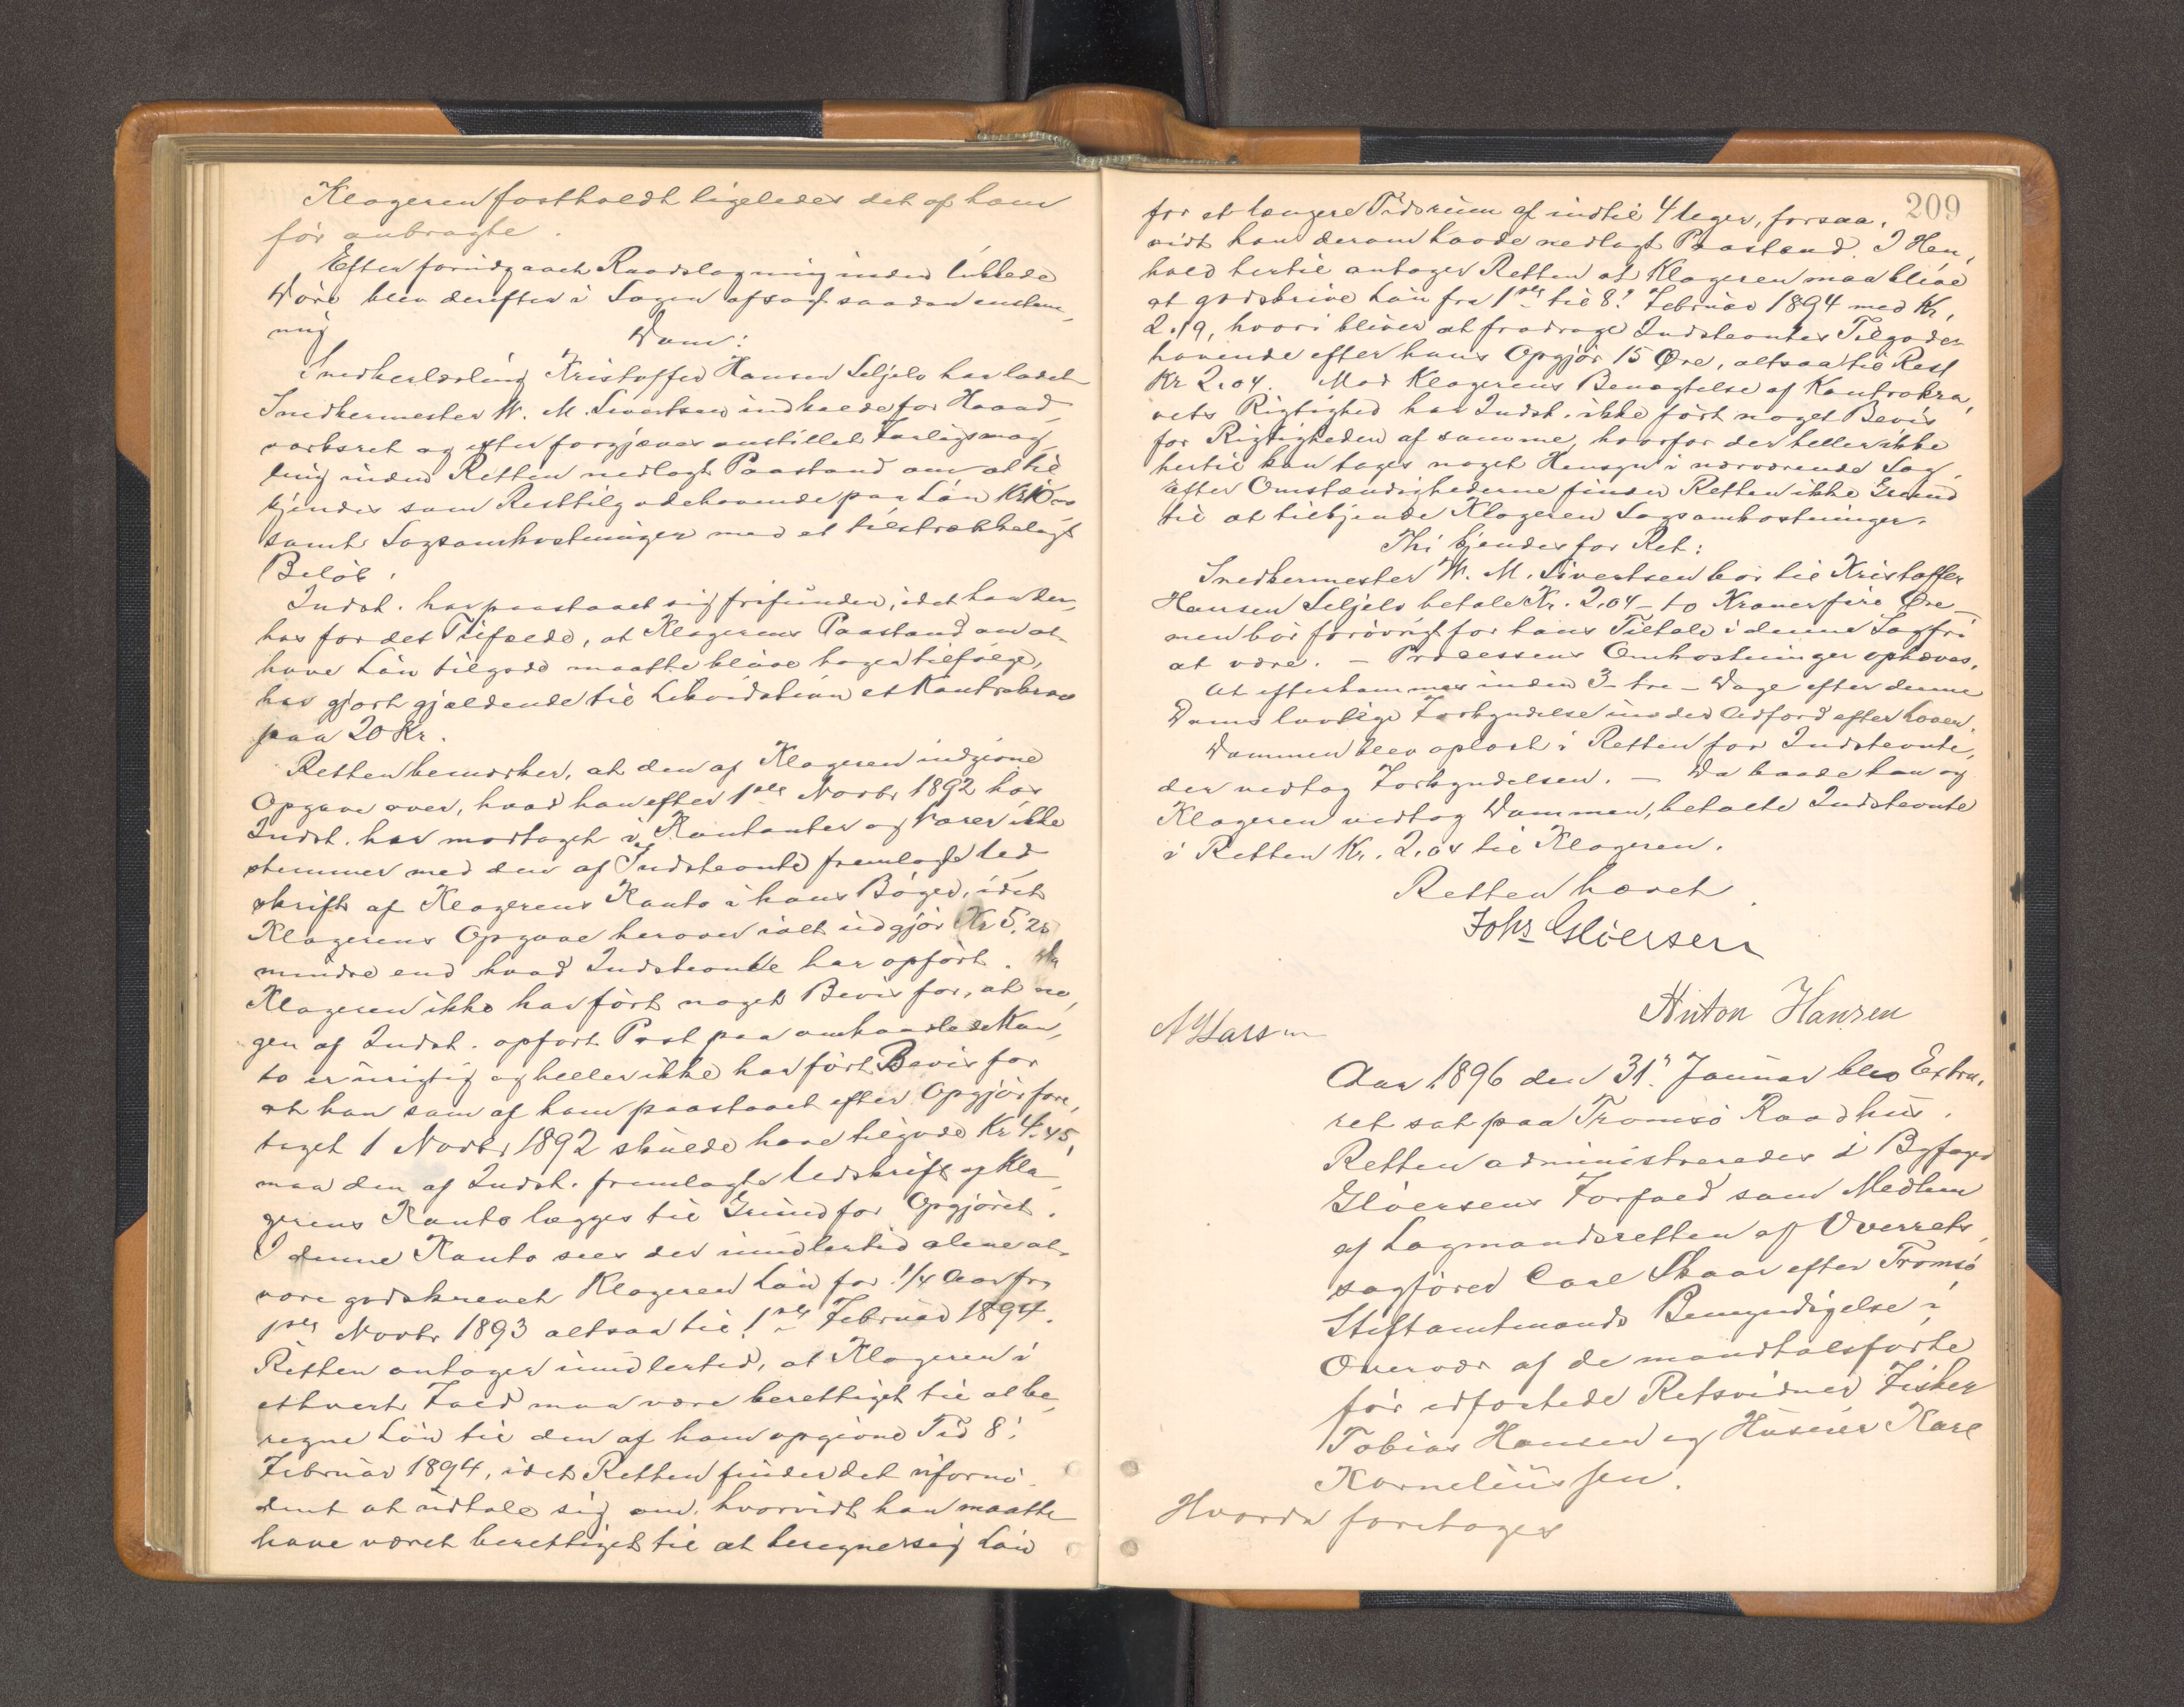 Klageren fastholdt ligeledes det af ham
før anbragte.
Efter forudgaaet Raadslagning inden lukkede
Døre blev derefter i Sagen afsagt saadan enstem-
mig
Dom:
Snedkerlærling Kristoffer Hansen Seljelv har ladet
Snedkermester W. M. Sivertsen indkalde for Haand-
værksret og efter forgjæves anstillet Forligsmæg-
ling inden Retten nedlagt Paastand om at til-
kjendes som Resttilgodehavende paa Løn Kr
samt Sagsomkostninger med et tilstrækkeligt
Beløb.
Indst. har paastaaet sig frifunden, idet han der-
hos for det Tilfælde, at Klagerens Paastand om at
have Løn tilgode maatte blive tagen tilfølge,
har gjort gjældende til Likvidation et Kontrakrav
paa 20 Kr.
Retten bemærker, at den af Klageren indgivne
Opgave over, hvad han efter 1ste Novbr 1892 hos
Indst. har modtaget i Kontanter og Varer ikke
stemmer med den af Indstevnte fremlagte Ud-
skrift af Klagerens Konto i hans Bøger, idet
Klagerens Opgave herover ialt udgjør Kr 5,25
mindre end hvad Indstevnte har opført. Da
Klageren ikke har ført noget Bevis for, at no-
gen af Indst. opført Post paa omhandlede Kon-
to er urigtig og heller ikke har ført Bevis for
at han som af ham paastaaet efter Opgjør fore-
taget 1 Novbr 1892 skulde have tilgode Kr 4.45,
maa den af Indst. fremlagte Udskrift af Kla-
gerens Konto lægges til Grund for Opgjøret.
I denne Konto sees der imidlertid alene at
være godskrevet Klageren Løn for 1/4 Aar fra
1ste Novbr 1893 altsaa til 1ste Februar 1894.
Retten antager imidlertid, at Klageren i
ethvert Fald maa være berettiget til at be-
regne Løn til den af ham opgivne Tid 8.
Februar 1894, idet Retten finder det ufornø-
dent at udtale sig om, hvorvidt han maatte
have været berettiget til at beregne sig Løn
209
for et længere Tidsrum af indtil 4 Uger, forsaa-
vidt han derom havde nedlagt Paastand. I Hen-
hold hertil antager Retten at Klageren maa blive
at godskrive Løn fra 1ste til 8. Februar 1894 med Kr.
2.19, hvori bliver at fradrage Indstevntes Tilgode-
havende efter hans Opgjør 15 Øre, altsaa til Rest
Kr 2.04. Mod Klagerens Benægtelse af Kontrakra-
vets Rigtighed har Indst. ikke ført noget Bevis
for Rigtigheden af samme, hvorfor der heller ikke
hertil kan tages noget Hensyn i nærværende Sag.
Efter Omstændighederne finder Retten ikke Grund
til at tilkjende Klageren Sagsomkostninger.
Thi kjendes for Ret:
Snedkermester W. M. Sivertsen bør til Kristoffer
Hansen Seljelv betale Kr. 2,04 – to Kroner fire Øre –
men bør forøvrigt for hans Tiltale i denne Sag fri
at være. – Processens Omkostninger ophæves.
At efterkommes inden 3 – tre – Dage efter denne
Doms lovlige Forkyndelse under Adfærd efter Loven.
Dommen blev oplæst i Retten for Indstevnte,
der vedtog Forkyndelsen. – Da baade han og
Klageren vedtog Dommen, betalte Indstevnte
i Retten Kr. 2.04 til Klageren.
Retten hævet.
Johs Gløersen
Anton Hansen
N Larsen
Aar 1896 den 31. Januar blev Extra-
ret sat paa Tromsø Raadhus.
Retten administreredes i Byfoged
Gløersens Forfald som Medlem
af Lagmandsretten af Overrets-
sagfører Carl Skaar efter Tromsø
Stiftamtmands Bemyndigelse i
Overvær af de mandtalsførte
før edfæstede Retsvidner Fisker
Tobias Hansen og Huseier Karl
Korneliussen.
Hvorda foretoges